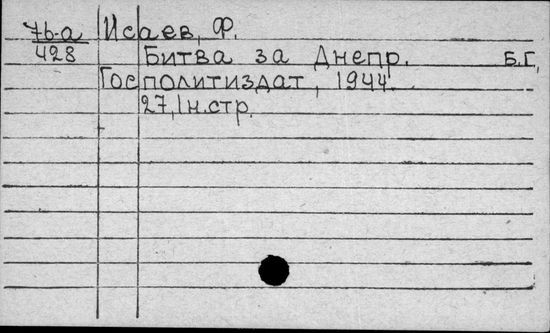 7б-а Исаев, Ф.
428 Битва за Днепр. Б.Г.,
Госполитиздат, 1944.
27,1н.стр.